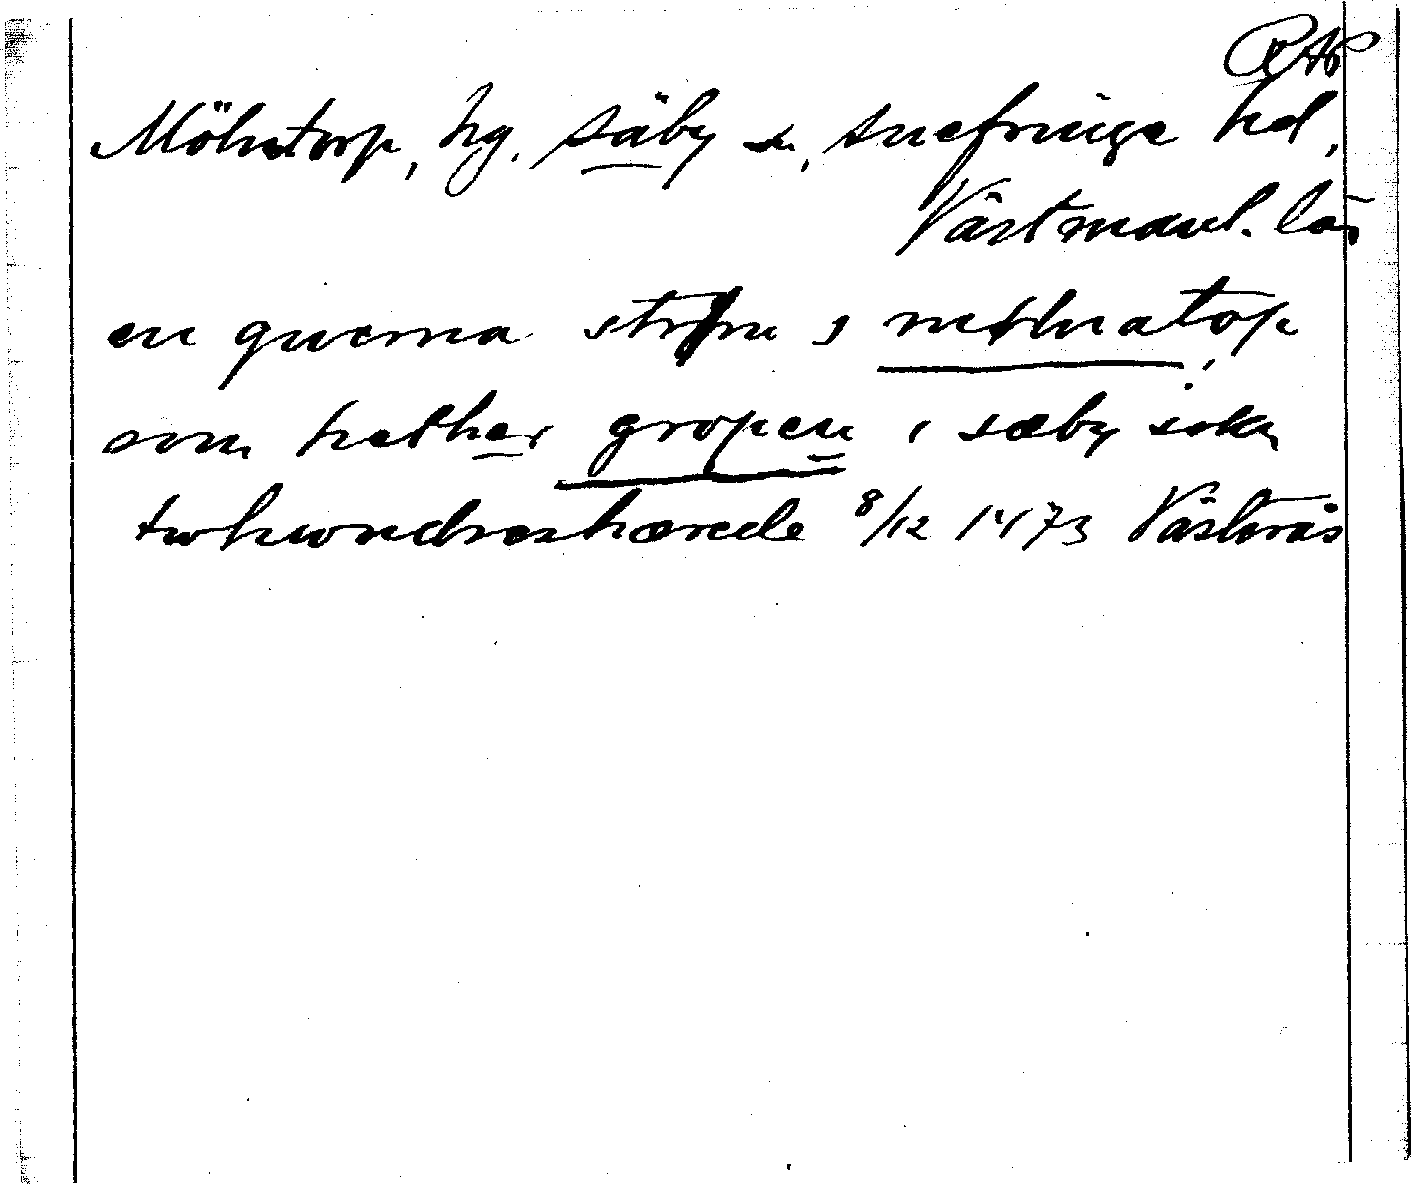 RAP
Möhntorp, hg. Säby sn, Snefringe hd,
Västmanl. län
en querna strøm j møhnatorp,
som hether gropen i sæby sokn
twhwndræshærede 8/12 1473 Västerås